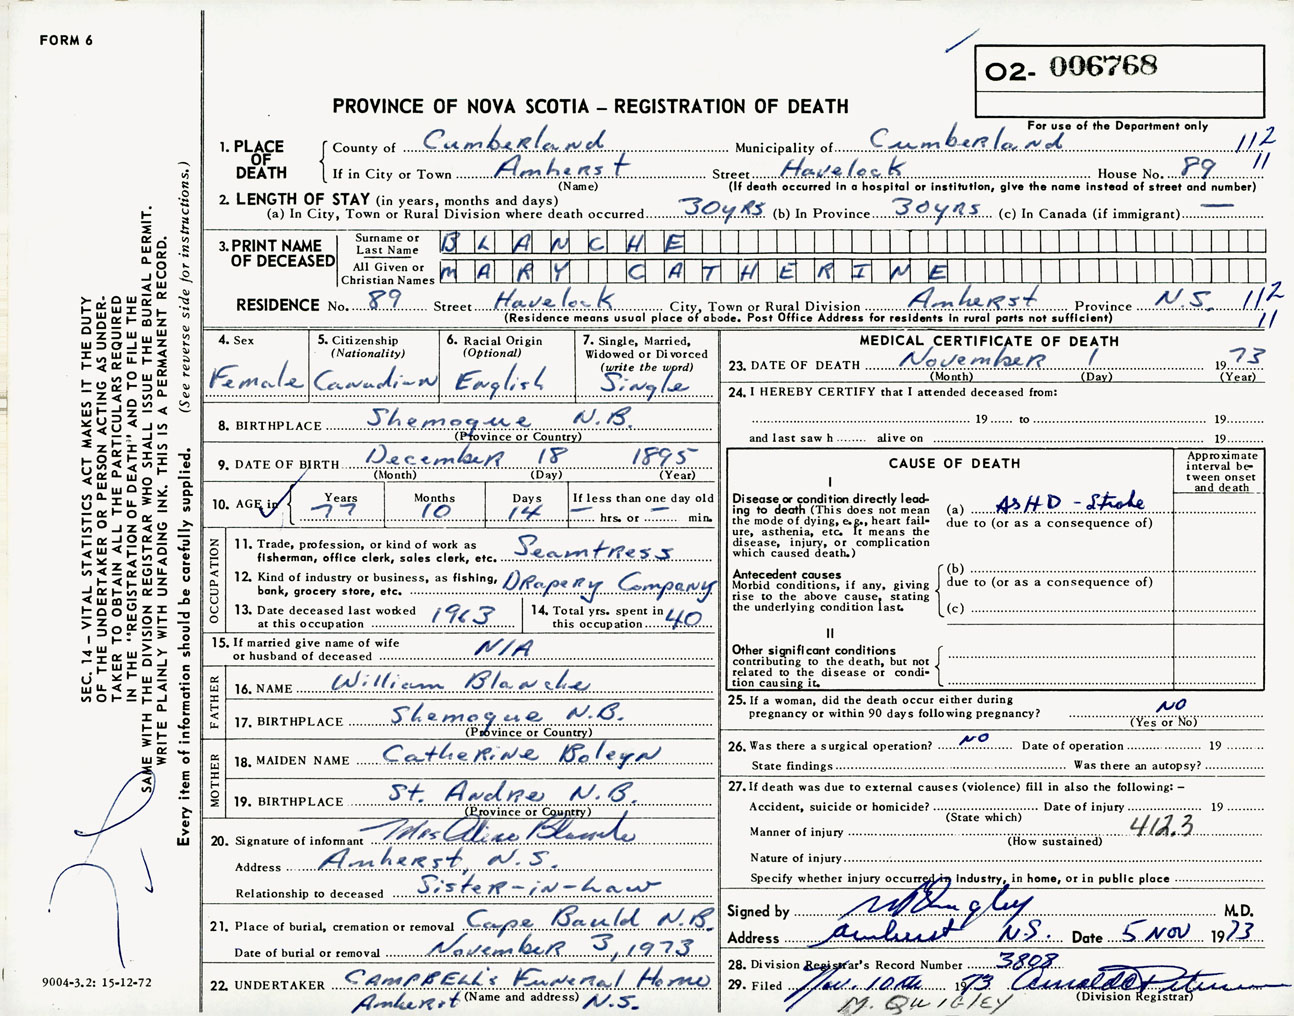 FORM 6
O2- 006768
PROVINCE OF NOVA SCOTIA – REGISTRATION OF DEATH
For use of the Department only
1. PLACE OF DEATH
County of Cumberland Municipality of Cumberland 112
If in City or Town Amherst Street Havelock House No. 89 11
(Name) (If death occurred in a hospital or institution, give the name instead of street and number)
2. LENGTH OF STAY (in years, months and days)
(a) In City, Town or Rural Division where death occurred 30yRS (b) In Province 30yRS (c) In Canada (if immigrant) —
3. PRINT NAME OF DECEASED
Surname or Last Name BLANCHE
All Given or Christian Names MARY CATHERINE
RESIDENCE No. 89 Street Havelock City, Town or Rural Division Amherst Province N.S. 112
(Residence means usual place of abode. Post Office Address for residents in rural parts not sufficient) 11
4. Sex
Female
5. Citizenship
(Nationality)
Canadian
6. Racial Origin
(Optional)
English
7. Single, Married,
Widowed or Divorced
(write the word)
Single
8. BIRTHPLACE Shemogue N.B.
(Province or Country)
9. DATE OF BIRTH December 18 1895
(Month) (Day) (Year)
10. AGE in
Years Months Days If less than one day old
77 10 14 — hrs. or — min.
OCCUPATION
11. Trade, profession, or kind of work as
fisherman, office clerk, sales clerk, etc. Seamtress
12. Kind of industry or business, as fishing,
bank, grocery store, etc. Drapery Company
13. Date deceased last worked
at this occupation 1963
14. Total yrs. spent in
this occupation 40
15. If married give name of wife
or husband of deceased N/A
FATHER
16. NAME William Blanche
17. BIRTHPLACE Shemogue N.B.
(Province or Country)
MOTHER
18. MAIDEN NAME Catherine Boleyn
19. BIRTHPLACE St. Andre N.B.
(Province or Country)
20. Signature of informant Mrs Aline Blanche
Address Amherst, N.S.
Relationship to deceased Sister-in-Law
21. Place of burial, cremation or removal Cape Bauld N.B.
Date of burial or removal November 3, 1973
22. UNDERTAKER CAMPBELL's Funeral Home
Amherst (Name and address) N.S.
MEDICAL CERTIFICATE OF DEATH
23. DATE OF DEATH November 1 1973
(Month) (Day) (Year)
24. I HEREBY CERTIFY that I attended deceased from:
19 to 19
and last saw h alive on 19
CAUSE OF DEATH
Approximate interval between onset and death
I
Disease or condition directly leading to death (This does not mean the mode of dying, e.g., heart failure, asthenia, etc. It means the disease, injury, or complication which caused death.)
(a) ASHD - Stroke
due to (or as a consequence of)
Antecedent causes
Morbid conditions, if any, giving rise to the above cause, stating the underlying condition last.
(b)
due to (or as a consequence of)
(c)
II
Other significant conditions
contributing to the death, but not related to the disease or condition causing it.
25. If a woman, did the death occur either during
pregnancy or within 90 days following pregnancy? NO
(Yes or No)
26. Was there a surgical operation? NO Date of operation 19
State findings Was there an autopsy?
27. If death was due to external causes (violence) fill in also the following: –
Accident, suicide or homicide? Date of injury 19
(State which)
Manner of injury 412.3
(How sustained)
Nature of injury
Specify whether injury occurred in industry, in home, or in public place
Signed by M Quigley M.D.
Address Amherst N.S. Date 5 NOV 1973
28. Division Registrar's Record Number 3808
29. Filed Nov. 10th 1973
(Division Registrar)
M. QUIGLEY
SEC. 14 – VITAL STATISTICS ACT MAKES IT THE DUTY
OF THE UNDERTAKER OR PERSON ACTING AS UNDER-
TAKER TO OBTAIN ALL THE PARTICULARS REQUIRED
IN THE "REGISTRATION OF DEATH" AND TO FILE THE
SAME WITH THE DIVISION REGISTRAR WHO SHALL ISSUE THE BURIAL PERMIT.
WRITE PLAINLY WITH UNFADING INK. THIS IS A PERMANENT RECORD.
Every item of information should be carefully supplied. (See reverse side for instructions.)
9004-3.2: 15-12-72